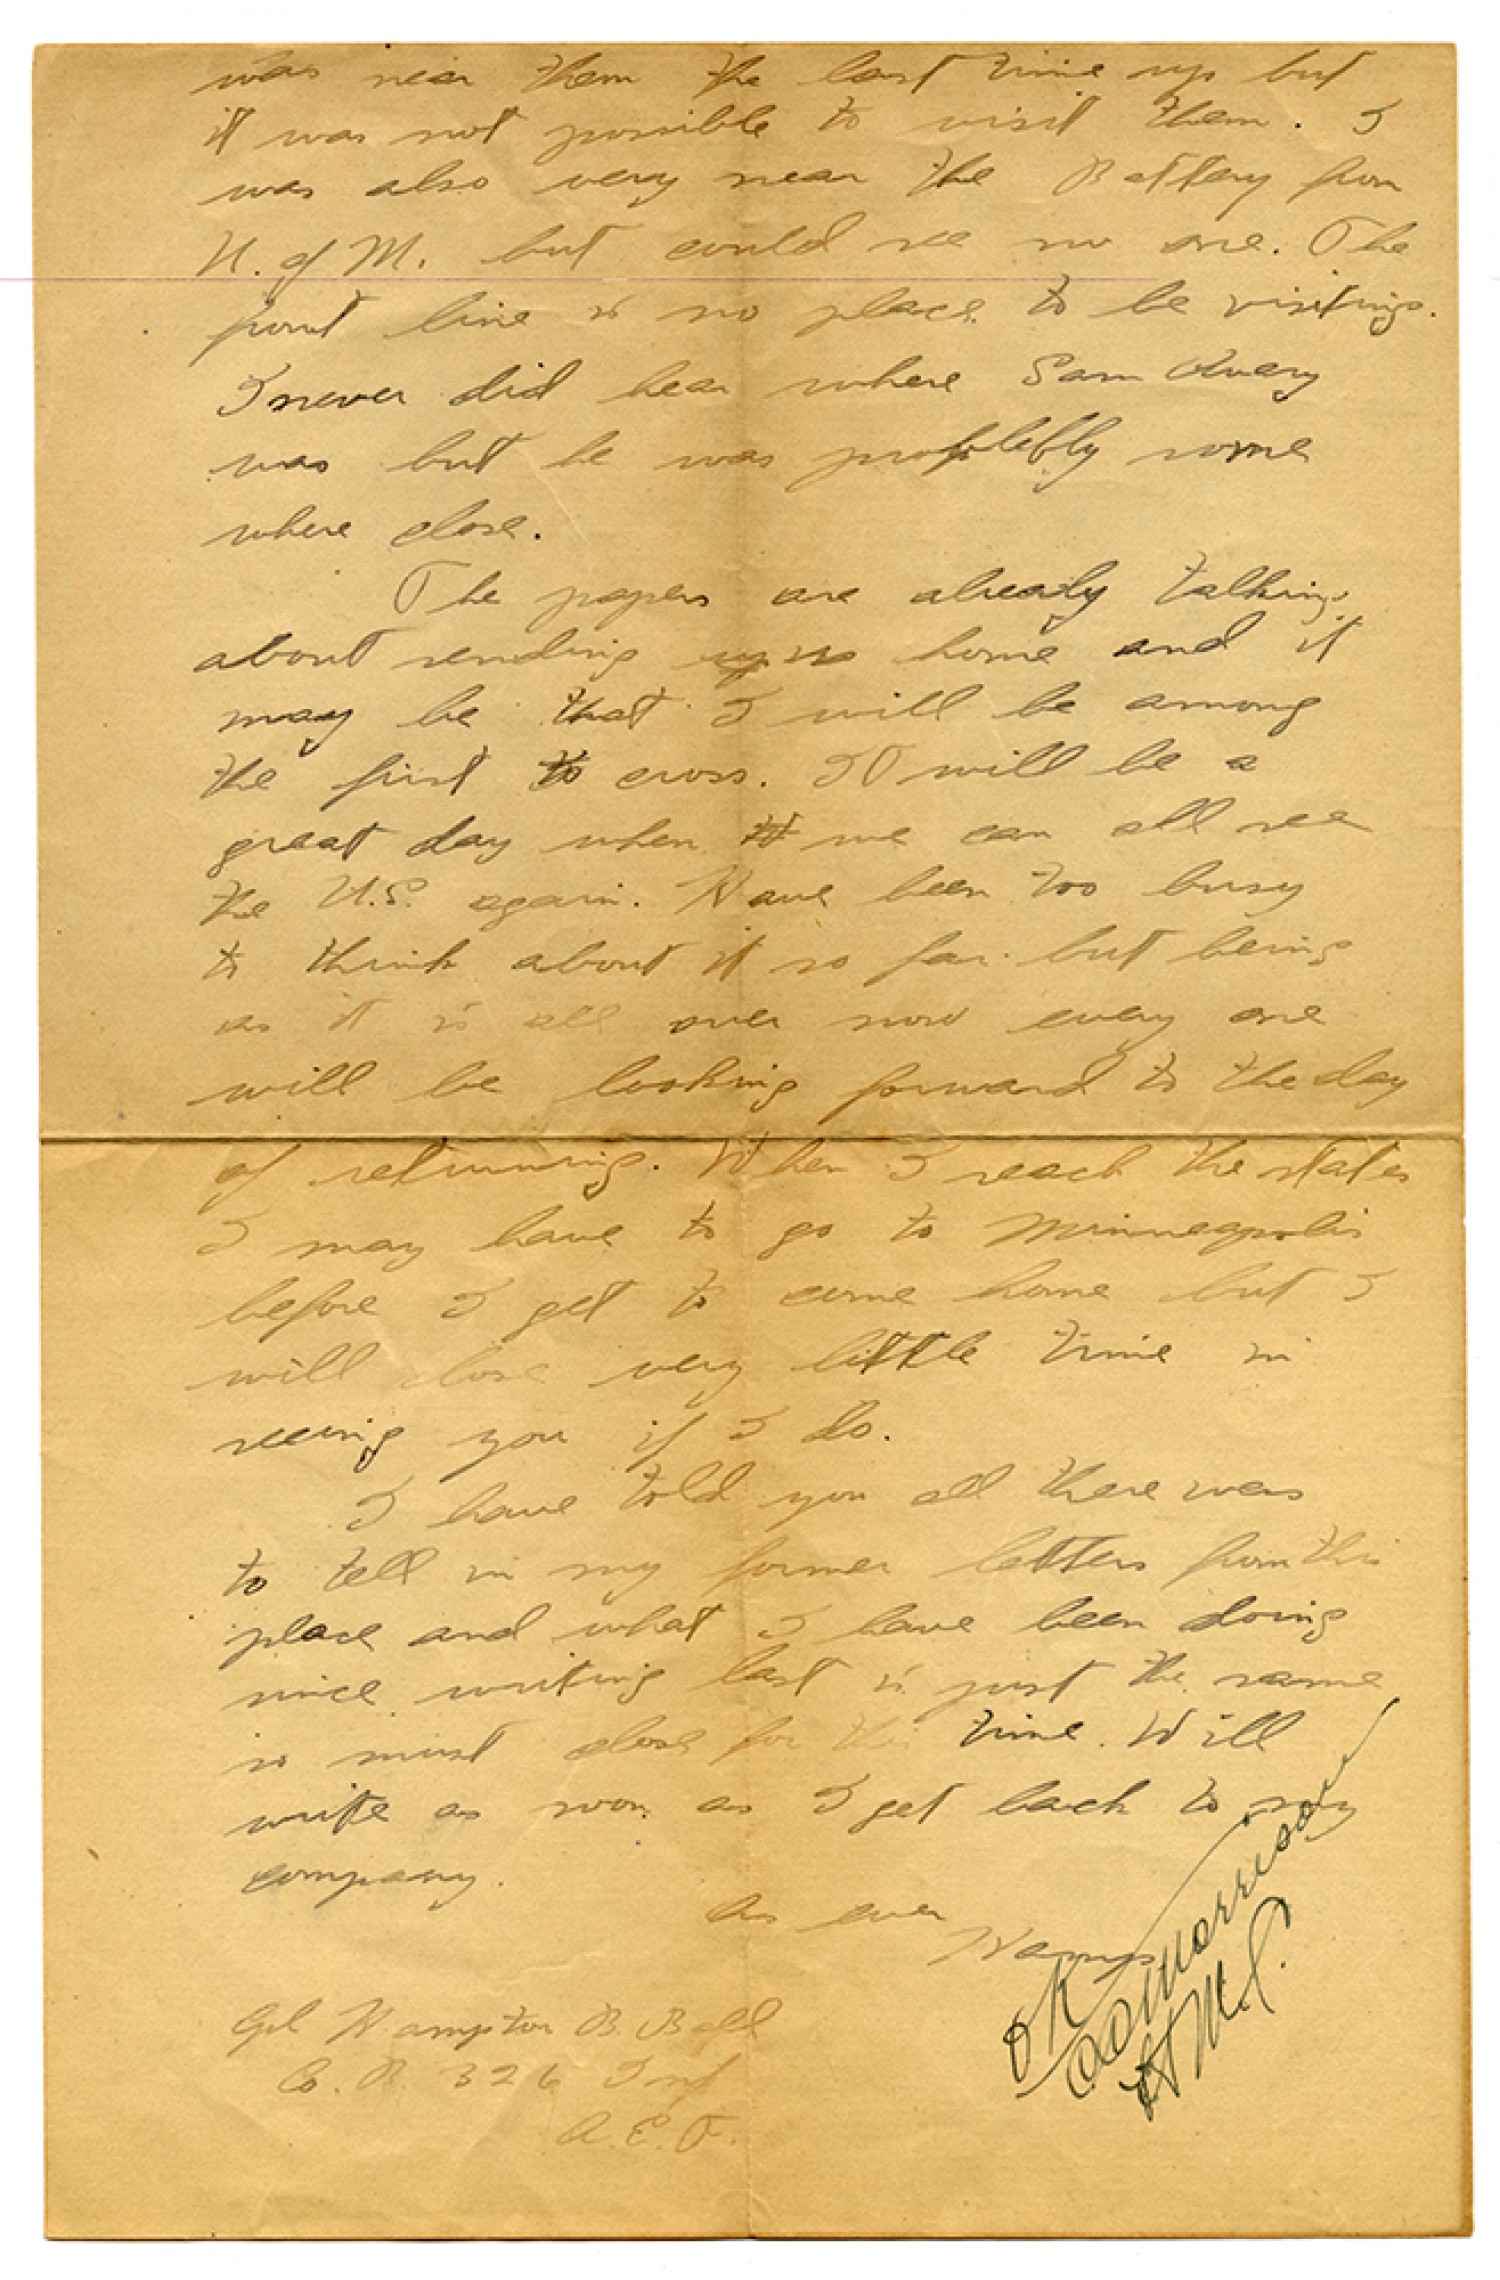 was near them the last time up but
it was not possible to visit them. I
was also very near the Battery from
U. of M. but could see no one. The
front line is no place to be visiting.
I never did hear where Sam Avery
was but he was problebly some
where close.
The papers are already talking
about sending us home and it
may be that I will be among
the first to cross. IT will be a
great day when we can all see
the U.S. again. Have been too busy
to think about it so far but being
as it is all over now every one
will be looking forward to the day
of returning. When I reach the states
I may have to go to Minneapolis
before I get to come home but I
will lose very little time in
seeing you if I do.
I have told you all there was
to tell in my former letters from this
place and what I have been doing
since writing last is just the same
so must close for this time. Will
write as soon as I get back to my
company.
As ever
Hamp
Cpl Hampton B. Ball
Co. B. 326 Inf
A.E.F.
OK
Morrison